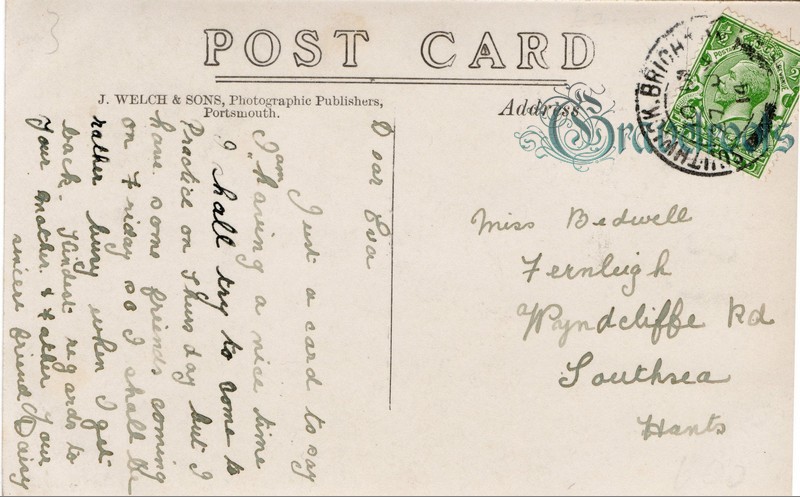 POST CARD
J. WELCH & SONS, Photographic Publishers,
Portsmouth.
Address
Grandroots
SOUTHWICK.BRIGHTON
Dear Eva
Just a card to say
I am having a nice time
I shall try to come to
Practice on Thursday but I
have some friends coming
on Friday so I shall be
rather busy when I get
back. Kindest regards to
Your Mother & Father Your
sincere friend Daisy
Miss Bedwell
Fernleigh
Wyndcliffe Rd
Southsea
Hants